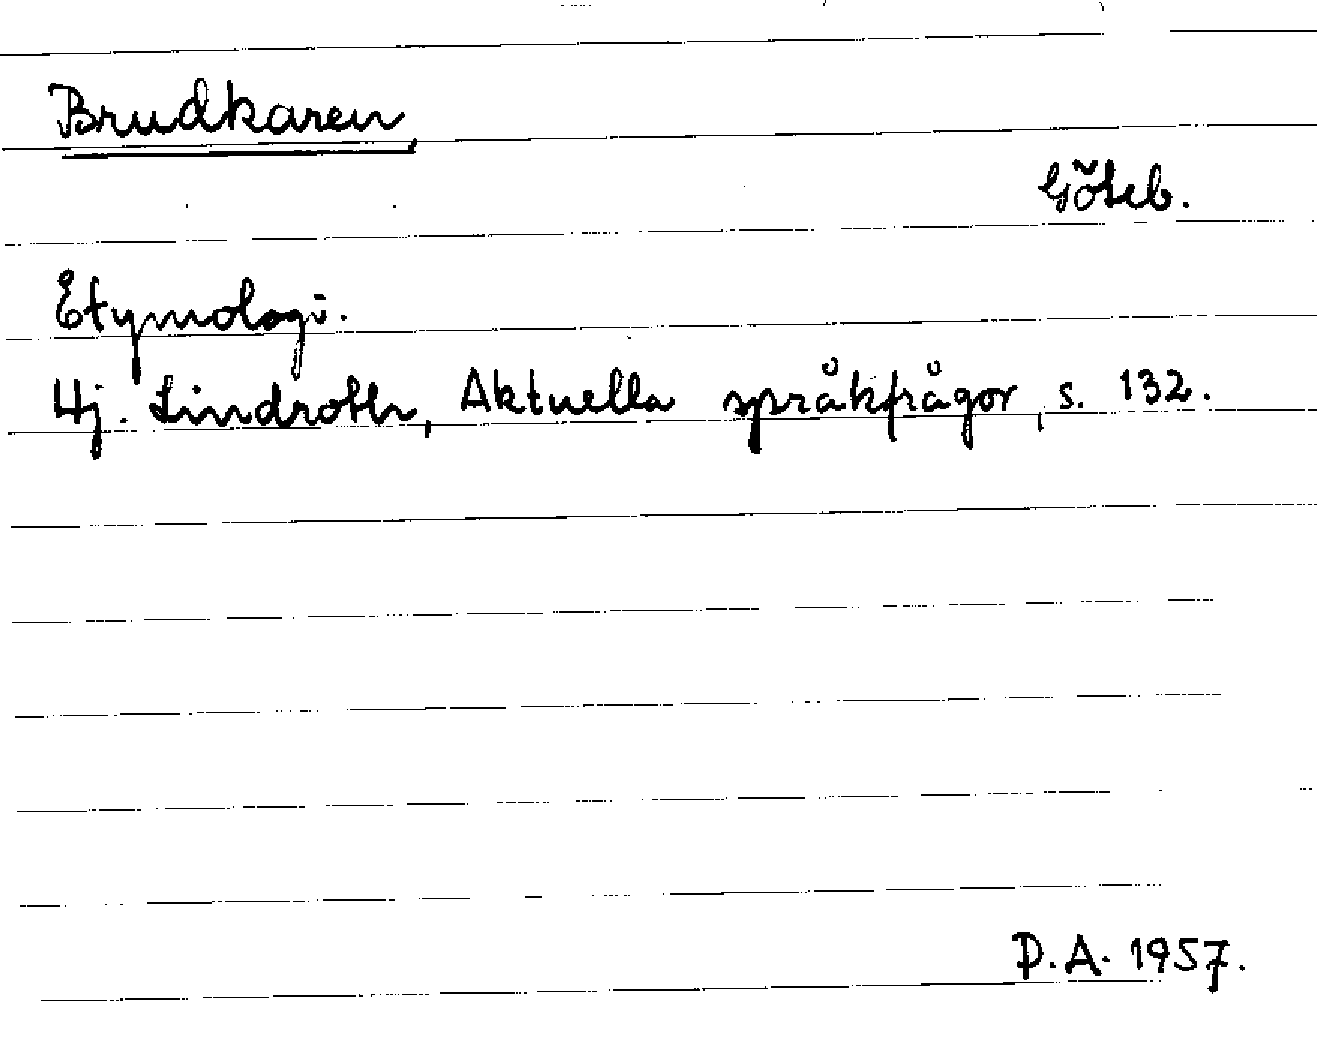 Brudkaren
Göteb.
Etymologi.
Hj. Lindroth, Aktuella språkfrågor, s. 132.
D.A. 1957.